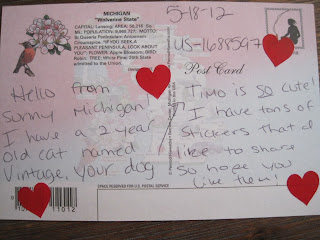 MICHIGAN
"Wolverine State"
CAPITAL: Lansing; AREA: 58,216 Sq.
MOTTO
Si Quaeris Peninsulam Amoenam
Circumspice, "IF YOU SEEK A
PLEASANT PENINSULA, LOOK ABOUT
YOU"; FLOWER: Apple Blossom, BIRD:
Robin; TREE: White Pine; 26th State
admitted to the Union.
5-18-12
US-1688597
Post Card
Hello from
Sunny Michigan!
I have a 2 year
old cat named
Vintage, your dog
Timo is so cute!
I have tons of
Stickers that I'd
like to share
so hope you
like them!
SPACE RESERVED FOR U.S. POSTAL SERVICE
11012